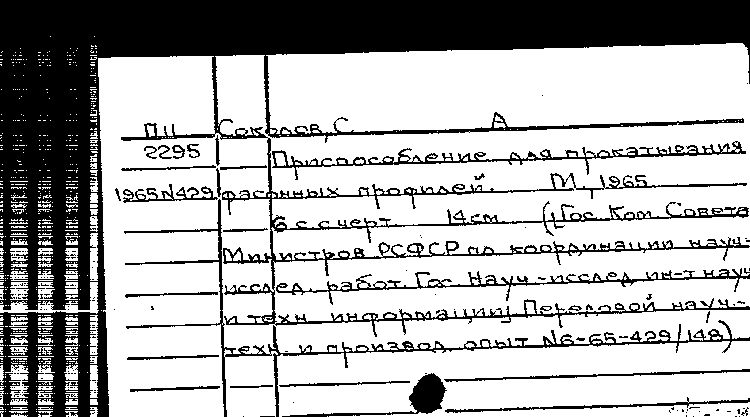 П11 Соколов, С. А
2295 Приспособление для прокатывания
1965 N429 фасонных профилей. М., 1965
6 с с черт. 14 см. ([Гос. Ком. Совета
Министров РСФСР по координации науч.-
исслед. работ. Гос. Науч.-исслед. ин-т науч
и техн. информации] Передовой науч.-
техн. и производ. опыт N6-65-429/148)